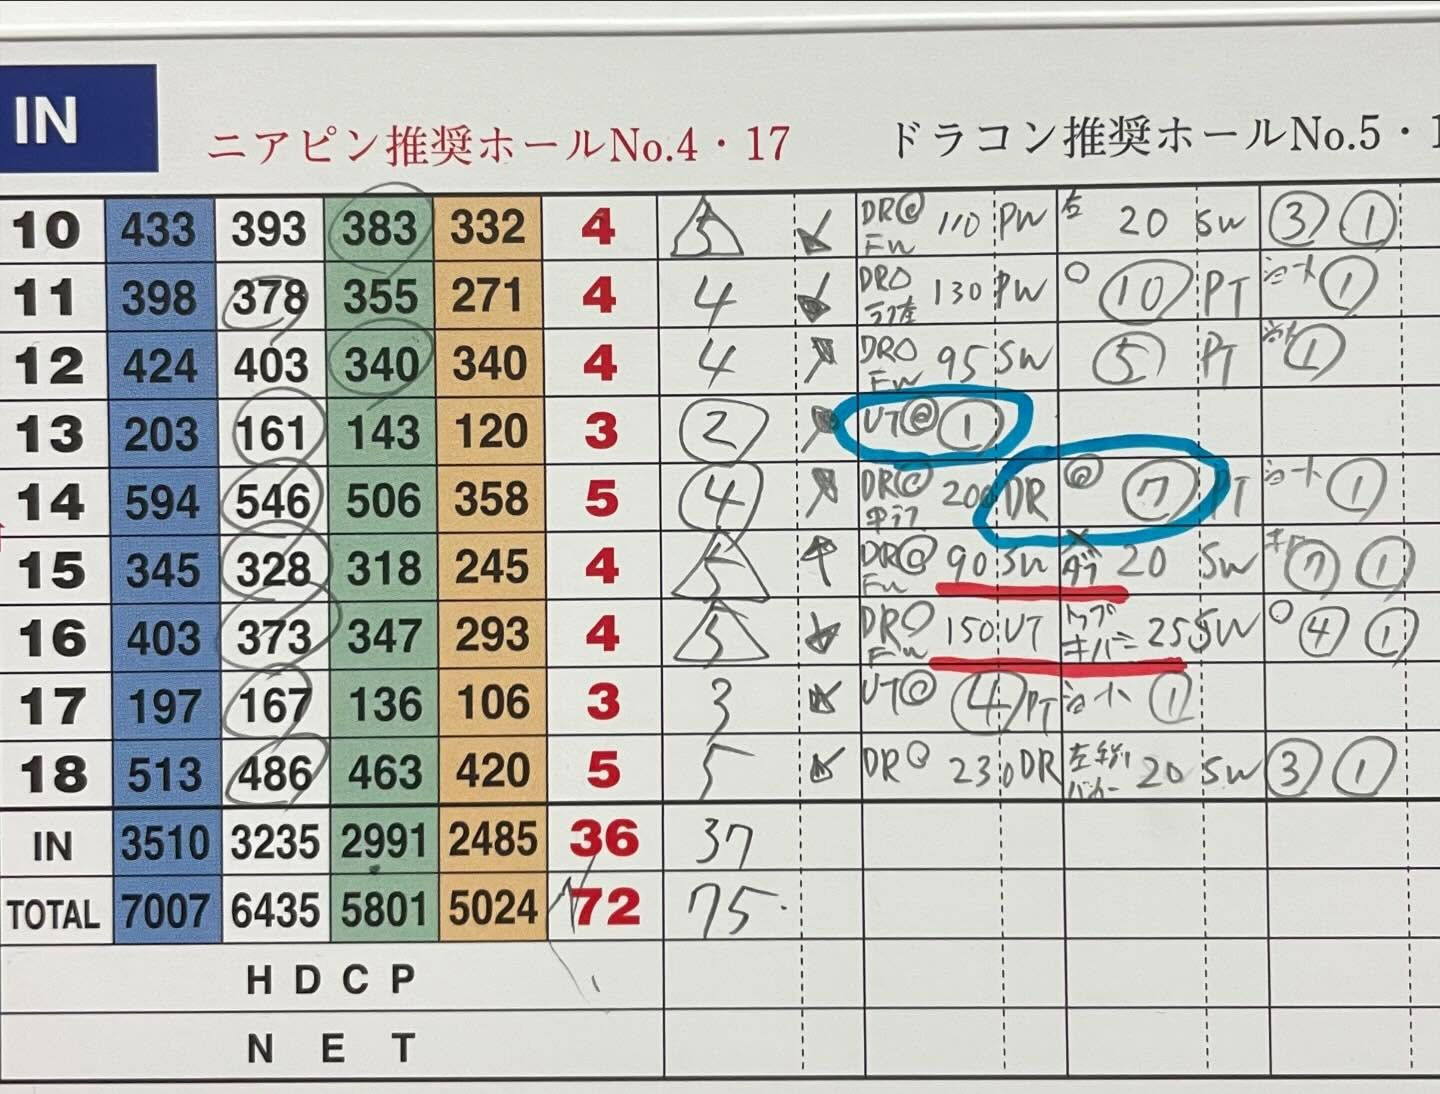 IN
ニアピン推奨ホールNo.4・17 ドラコン推奨ホールNo.5・1
10 433 393 383 332 4 5 DR◎ FW 110 PW 左 20 SW ③ ①
11 398 378 355 271 4 4 DR○ 130 PW ○ ⑩ PT ショート ①
12 424 403 340 340 4 4 DR○ FW 95 SW ⑤ PT ①
13 203 161 143 120 3 ② UT◎ ①
14 594 546 506 358 5 ④ DR◎ 200 DR ◎ ⑦ PT ショート ①
15 345 328 318 245 4 5 DR◎ FW 90 SW ダフ 20 SW ⑦ ①
16 403 373 347 293 4 5 DR○ FW 150 UT トップ 25 SW ○ ④ ①
17 197 167 136 106 3 3 UT◎ ④ PT ショート ①
18 513 486 463 420 5 5 DR◎ 230 DR バンカー 20 SW ③ ①
IN 3510 3235 2991 2485 36 37
TOTAL 7007 6435 5801 5024 72 75
HDCP
NET